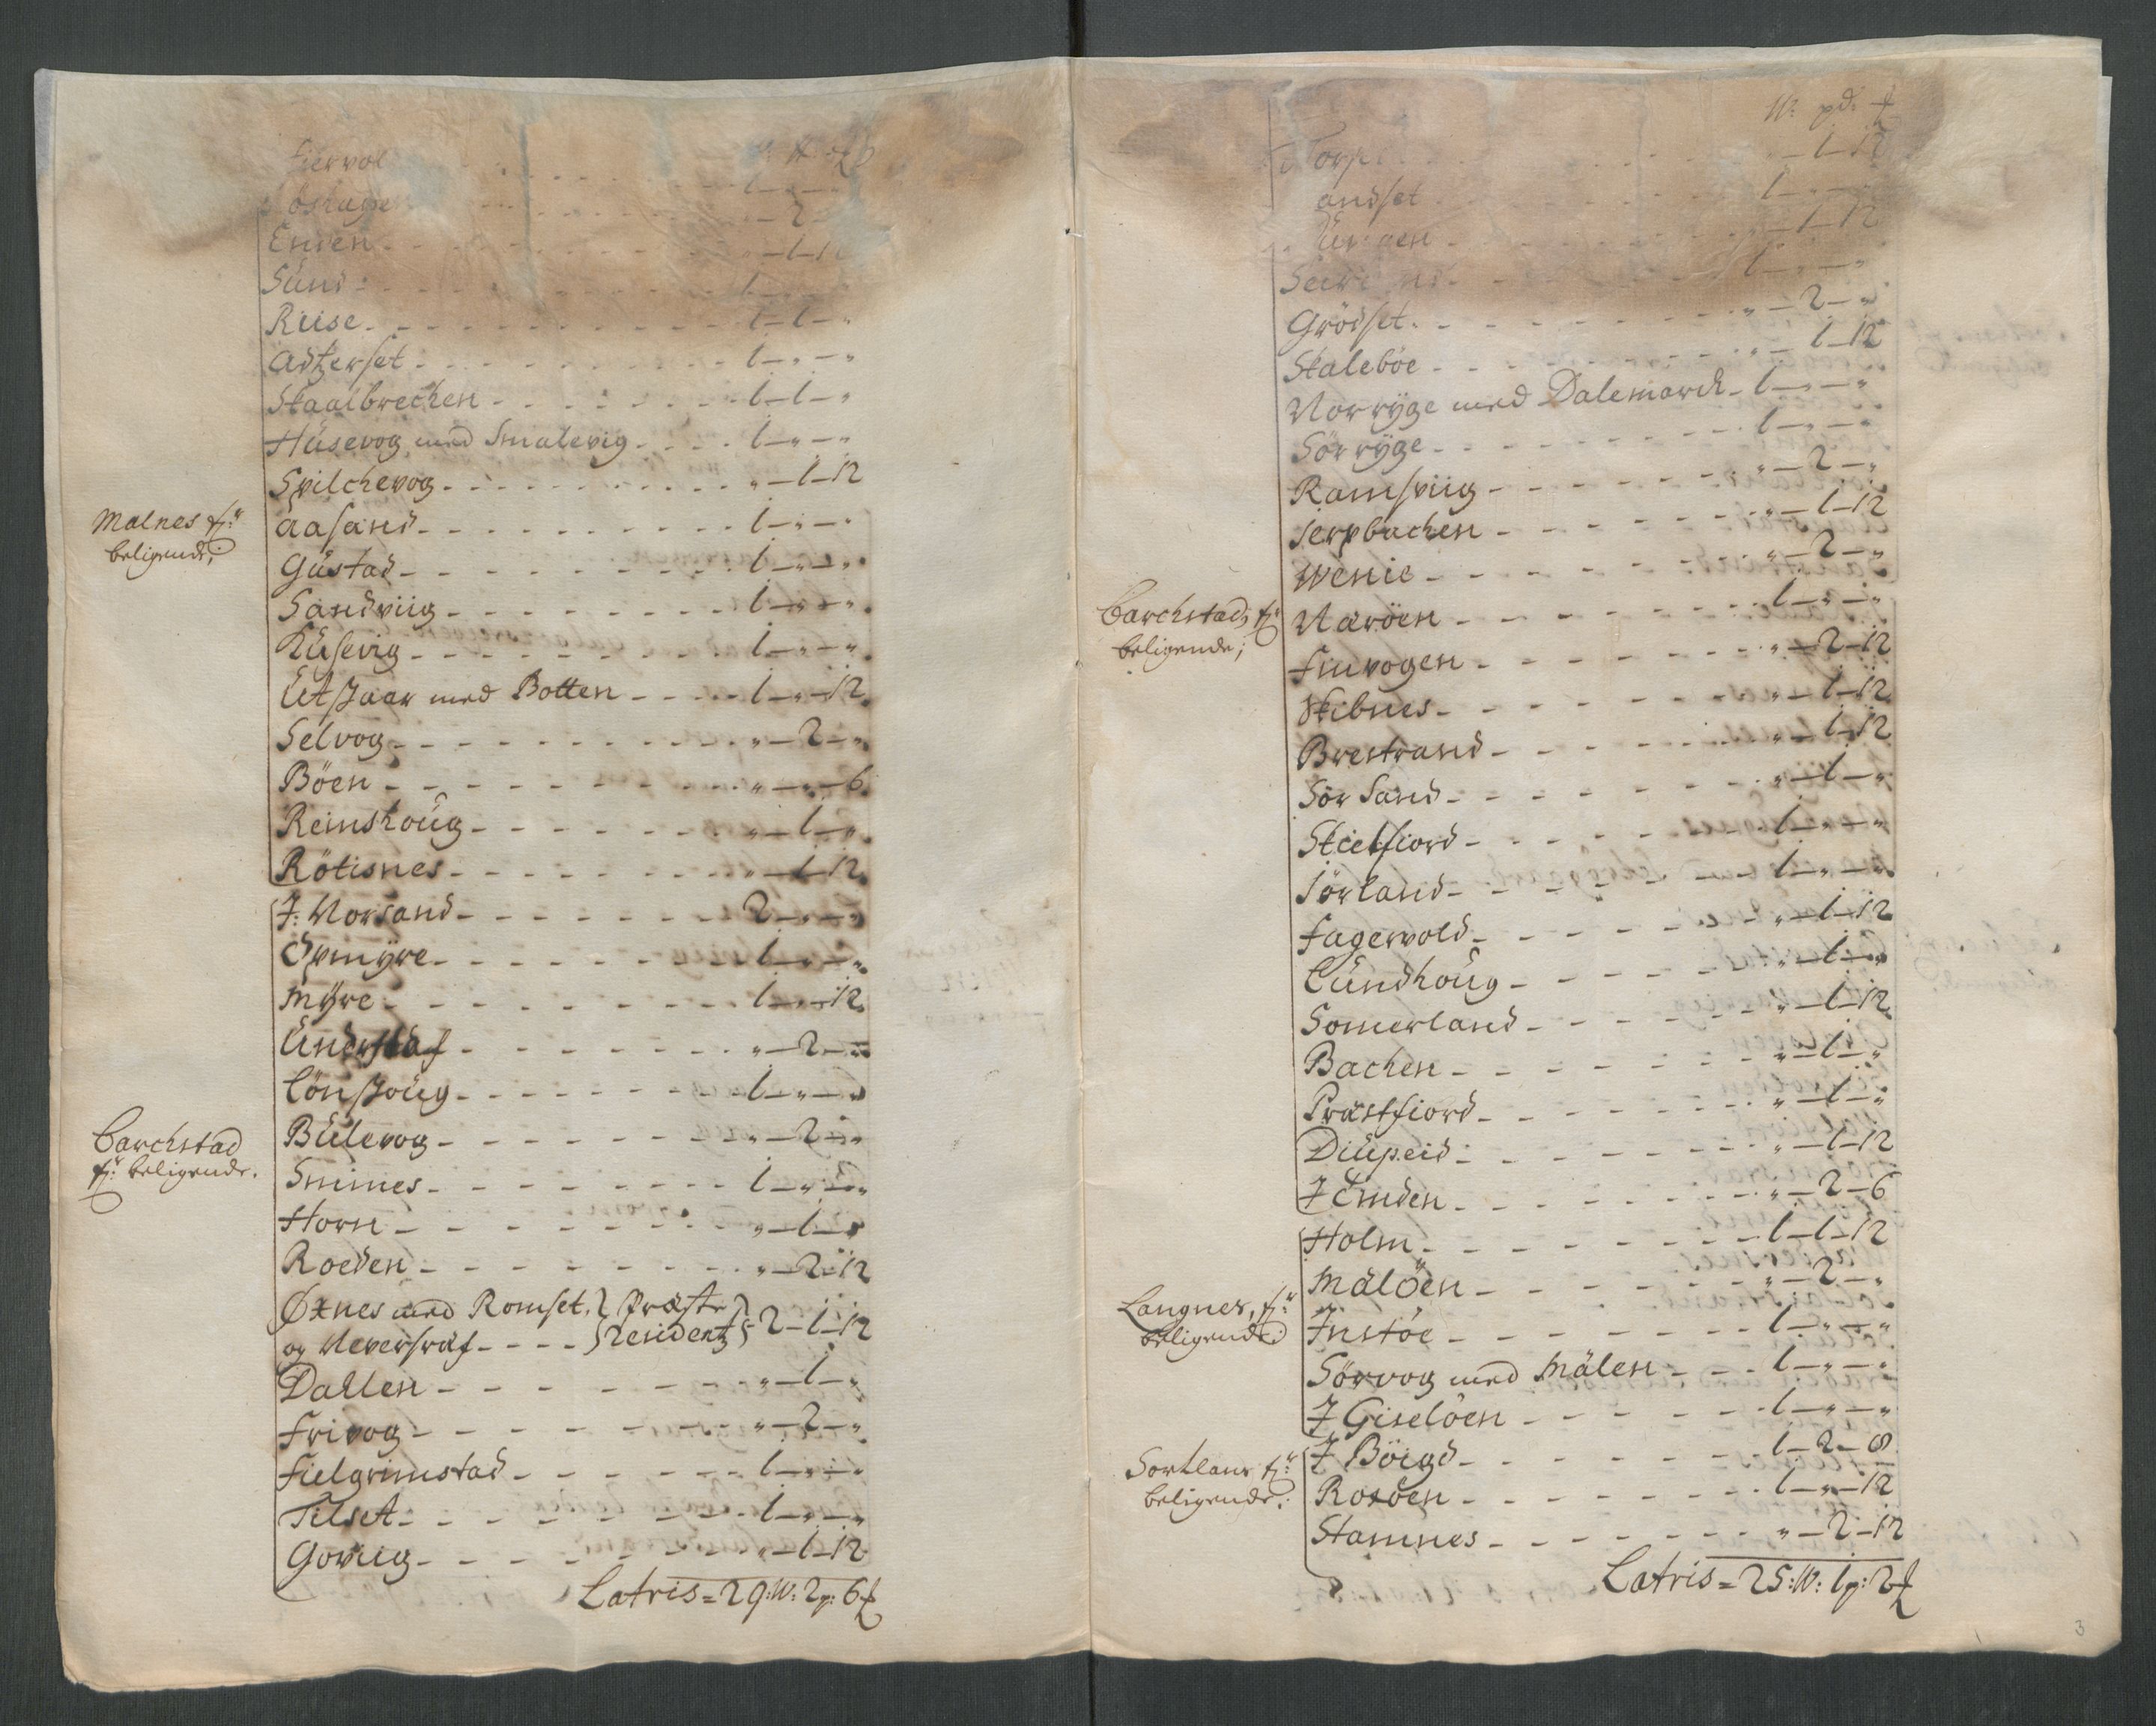 Fiervol
Enden - - " - 1 - 1
Sund - - 1
Riise - - 1 - 1 - "
Adtzerset - - 1 - " - "
Skaalbrechen - - 1 - 1 - "
Husevog med Smalevig - - 1 - " - "
Spilchevog - - " - 1 - 12
Malnes fr:
beligende;
Aasand - - 1 - " - "
Gustad - - 1 - " - "
Sandviig - - 1 - " - "
Kusevig - - 1 - " - "
Utskaar med Botten - - 1 - " - 12
Selvog - - " - 2 - "
Böen - - " - " - 6
Reinshoug - - " - 1 - "
Rötisnes - - " - 1 - 12
J: Norsand - - 2 - " - "
Opmyre - - 1 - " - "
Myre - - 1 - " - 12
- - " - 2 - "
Lönskoug - - 1 - " - "
Barchstad
fr: beligende.
Bulevog - - " - 2 - "
Smines - - 1 - " - "
Horn - - " - 1 - "
Roeden - - " - 2 - 12
Øxnes med Romset, } Præste }
og Neversraf - - } Residentz } 2 - 1 - 12
Dallen - - " - 1 - "
Frivog - - " - 2 - "
Fielgrimstad - - 1 - " - "
Tilset - - 1 - " - "
Goviig - - " - 1 - 12
Latris = 29: W: 2 p: 6 ℔
W: pd: ℔
- - " - 1 - 12
andset - - 1
- - " - 1 - 12
- - 1 - " - "
Grödset - - " - 2 - "
Skaleböe - - " - 1 - 12
Norryge med Dalemarch - 1 - " - "
Sörryge - - 1 - " - "
Ramsviig - - " - 2 - "
Jerpbachen - - " - 1 - 12
Wenie - - " - 2 - "
Barchstads fr:
beligende;
Næröen - - 1 - " - "
Finvogen - - " - 2 - 12
Skibnes - - " - 1 - 12
Brestrand - - " - 1 - 12
Sör Sand - - " - 1 - "
Skielfiord - - 1 - " - "
Sörland - - 1 - " - "
Fagervold - - " - 1 - 12
Lundhoug - - " - 1 - "
Somerland - - " - 1 - 12
Bachen - - " - 1 - "
Præstfiord - - " - 1 - "
Diupeid - - " - 1 - 12
J Omden - - " - 2 - 6
Holm - - 1 - 1 - 12
Langnes, fr:
beligende:
Malöen - - " - 2 - "
Instöe - - 1 - " - "
Sörvog med Mälen - - 1 - " - "
J Giselöen - - 1 - " - "
Sortlans fr:
beligende:
J Böigd - - 1 - 2 - 8
Rosöen - - 1 - " - 12
Stamnes - - " - 2 - 12
Latris = 25: W: 1 p: 2 ℔
3